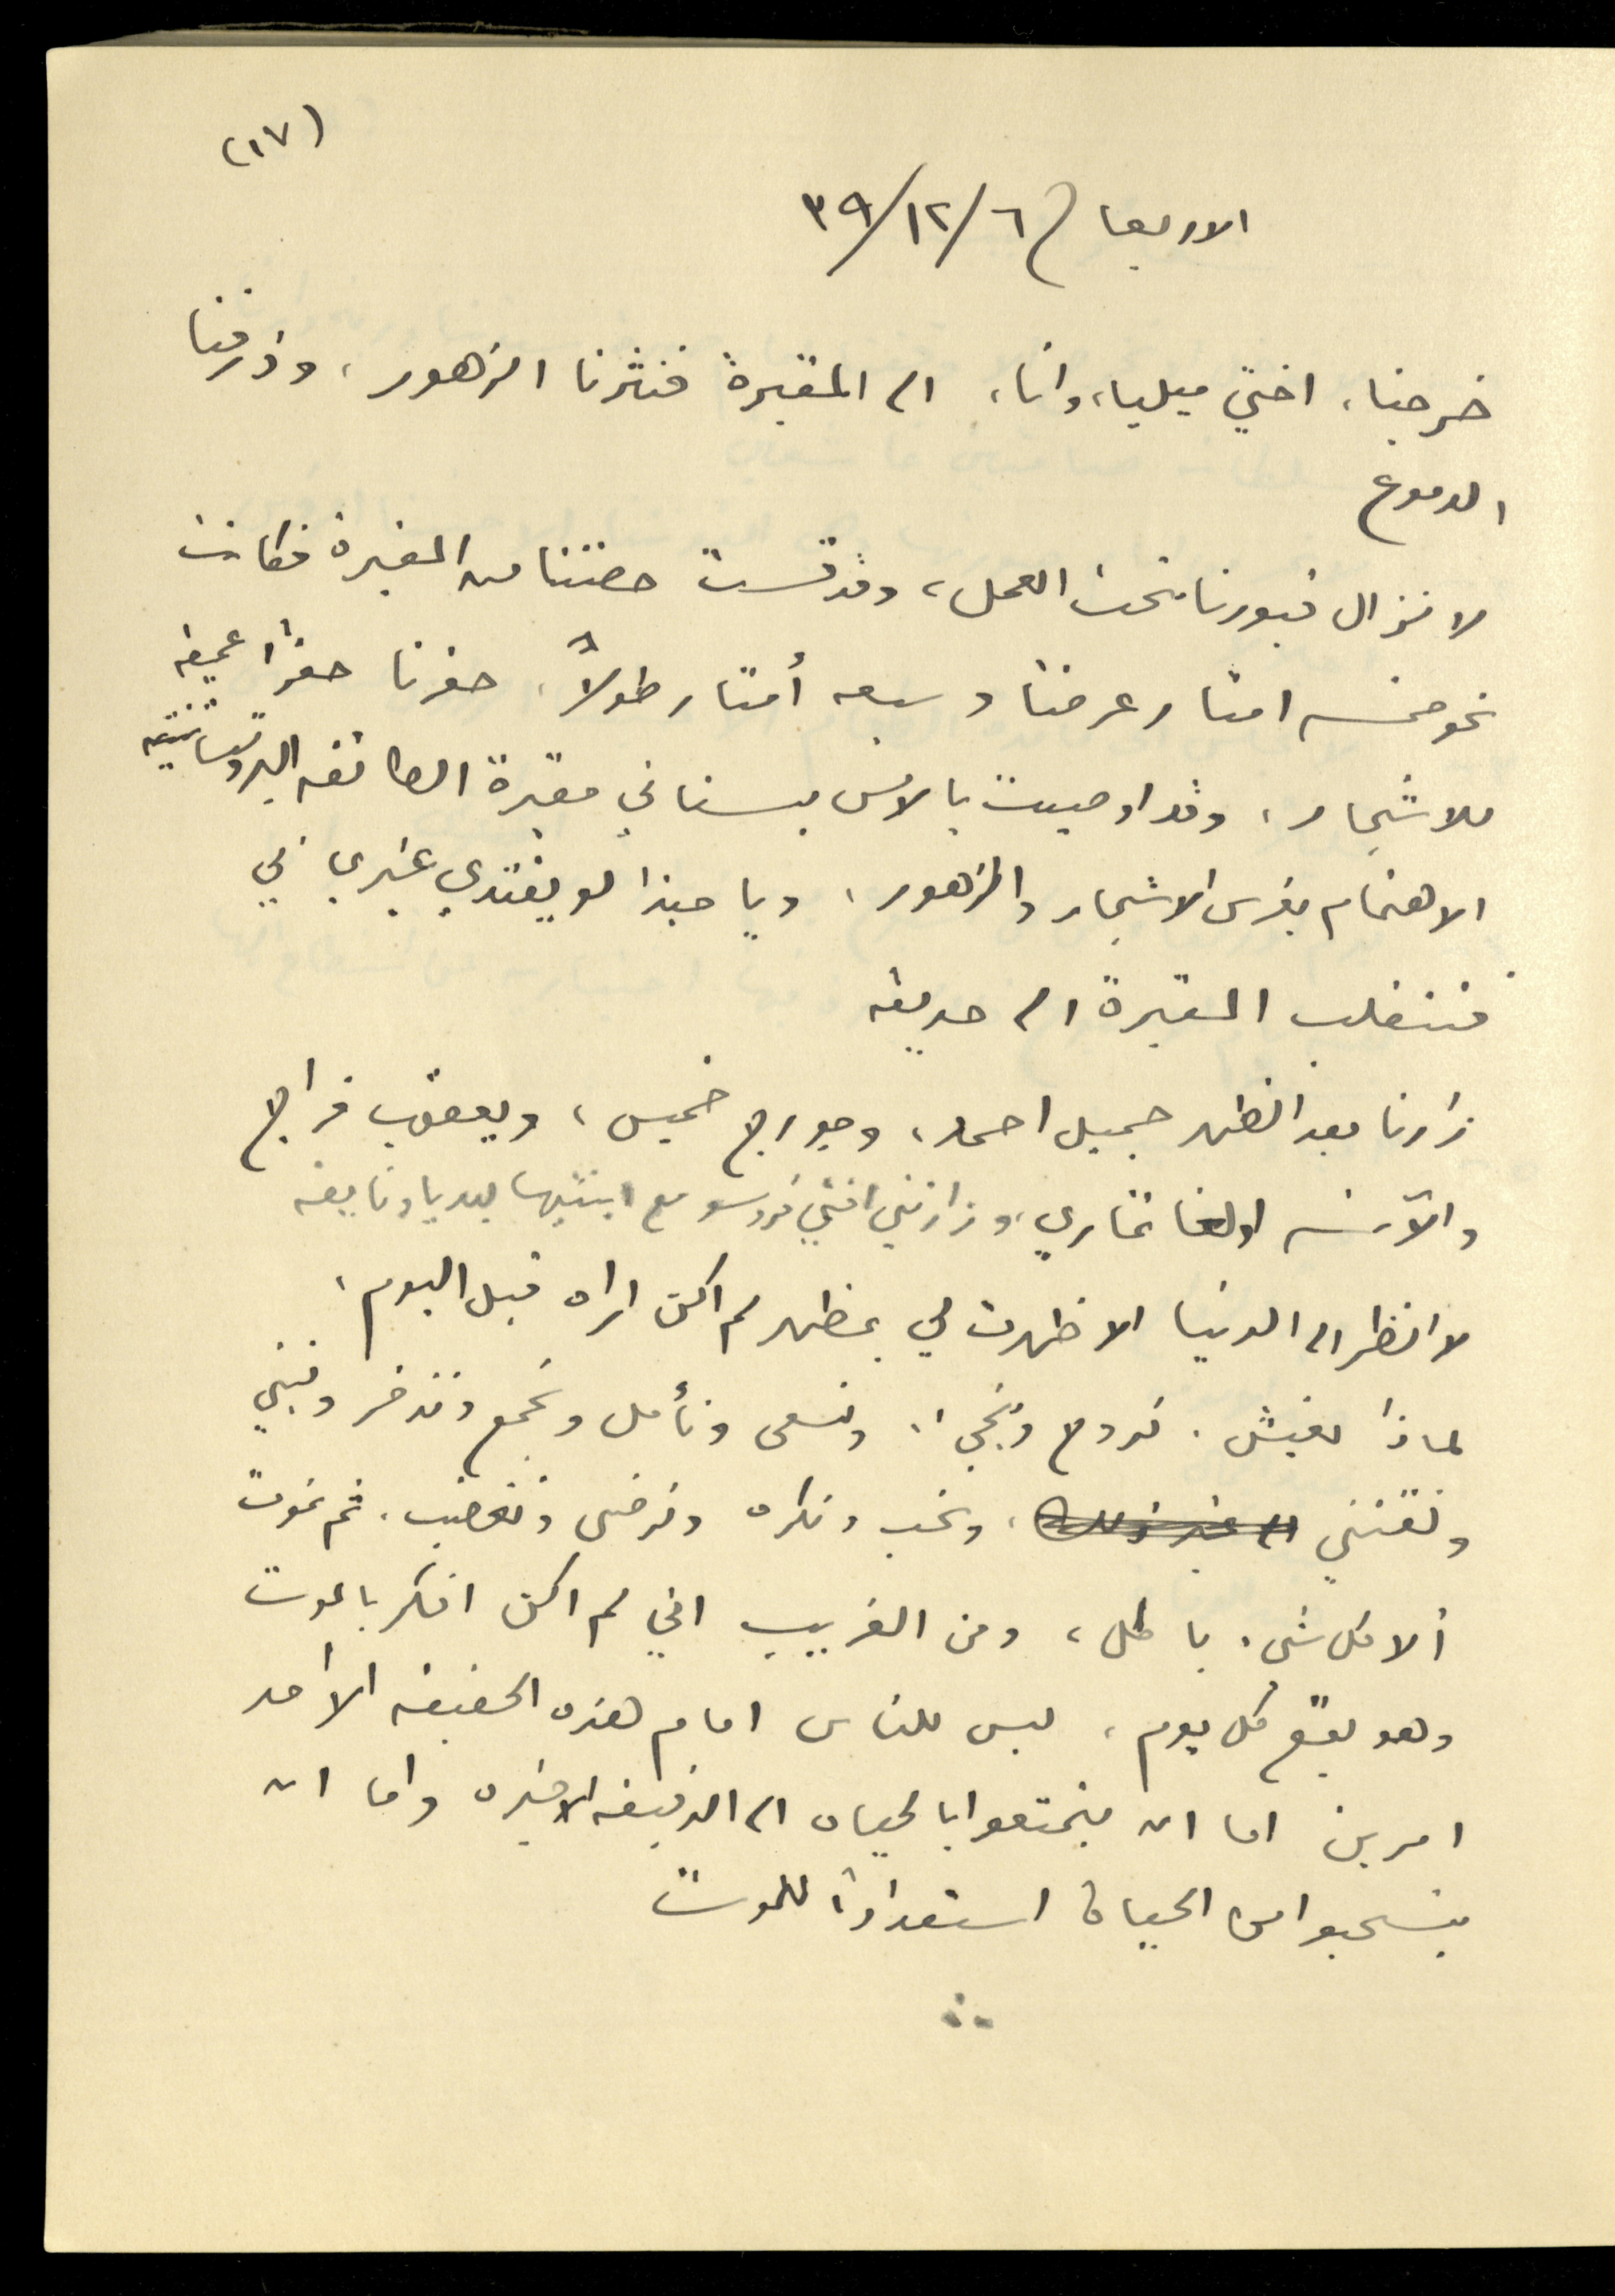 (١٧)
الاربعا ٦/١٢/٣٩
خرجنا، اختي ميليا، وانا، الى المقبرة فنثرنا الزهور، وذرفنا
الدموع
لا نزال قبورنا تحت العمل، وقد قست حصتنا من المقبرة فكانت
نحو خمسه امتار عرضاً وسبعه أمتار طولاً، حفرنا حفراً عميقه
للاشجار، وقد اوصيت بالامس بستاني مقبرة الطائفه البروتستانتيه
الاهتمام بغرس الاشجار والزهور، ويا حبذا لو يقتدي غيري بي
فتنقلب المقبرة الى حديقه
زارنا بعد الظهر جميل احمد، وجورج خميس، ويعقوب فراج
والآنسه اولغا تماري، وزارتني اختي فروسو مع ابنتيها ليديا ونايفه
لا انظر الى الدنيا الا ظهرت لي بمظهر لم اكن اراه قبل اليوم،
لماذا نعيش. نروح ونجيء. ونسعى ونأمل ونجمع وندخر ونبني
ونقتني الى غير ذلك، ونحب ونكره ونرضى ونغضب. ثم نموت
ألا كل شيء باطل، ومن الغريب اني لم اكن افكر بالموت
وهو يقع كل يوم، ليس للناس امام هذه الحقيقه الا احد
امرين اما ان يتمتعوا بالحياه الى الدقيقه الاخيره واما ان
ينسحبوا من الحياة استعداداً للموت